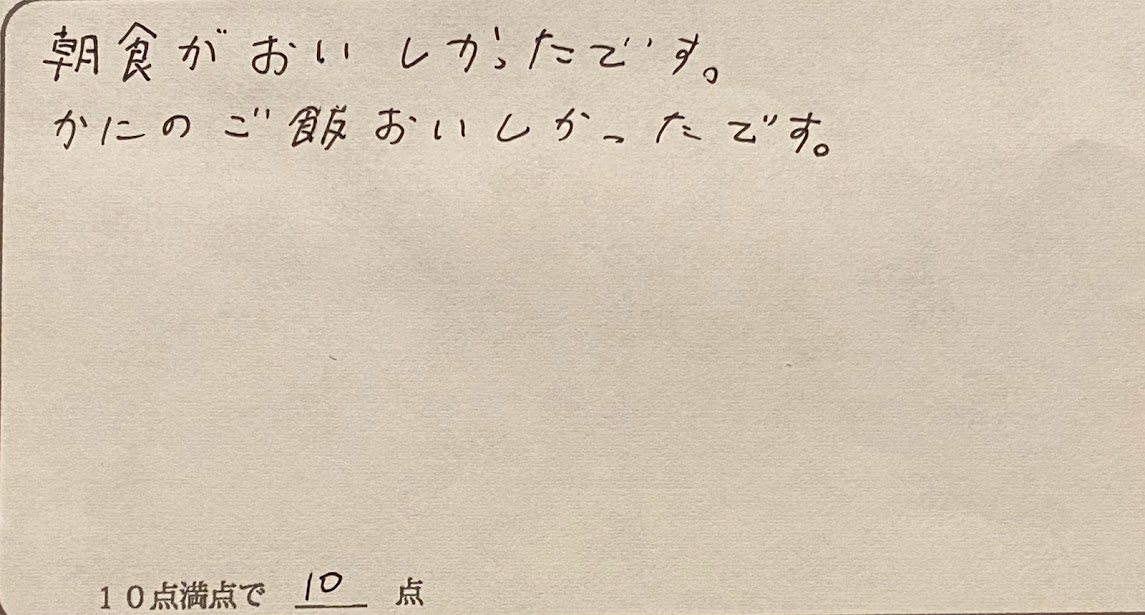 朝食がおいしかったです。
かにのご飯おいしかったです。
10点満点で 10 点